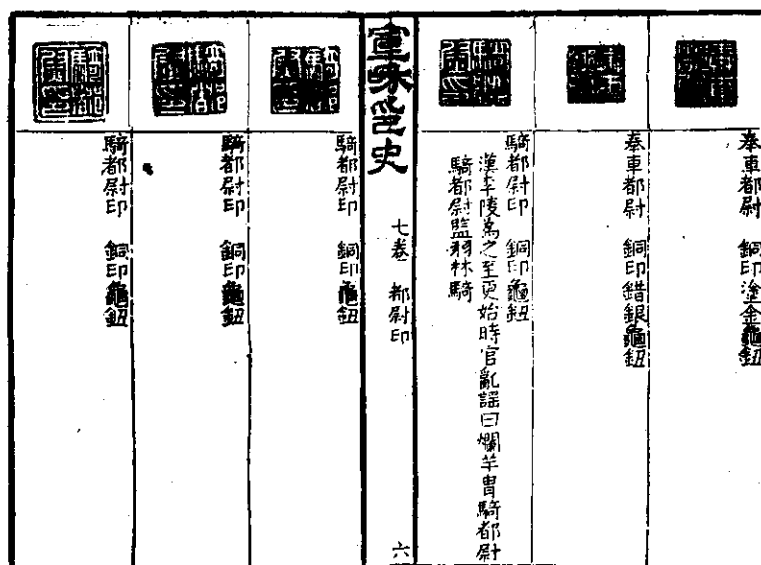 奉車都尉 銅印塗金龜鈕
奉車都尉 銅印錯銀龜鈕
騎都尉印 銅印龜鈕
漢李陵為之至更始時官亂謡曰爛羊胃騎都尉
騎都尉監羽林騎
宣和印史
七卷 都尉印
六
騎都尉印 銅印龜鈕
騎都尉印 銅印龜鈕
騎都尉印 銅印龜鈕